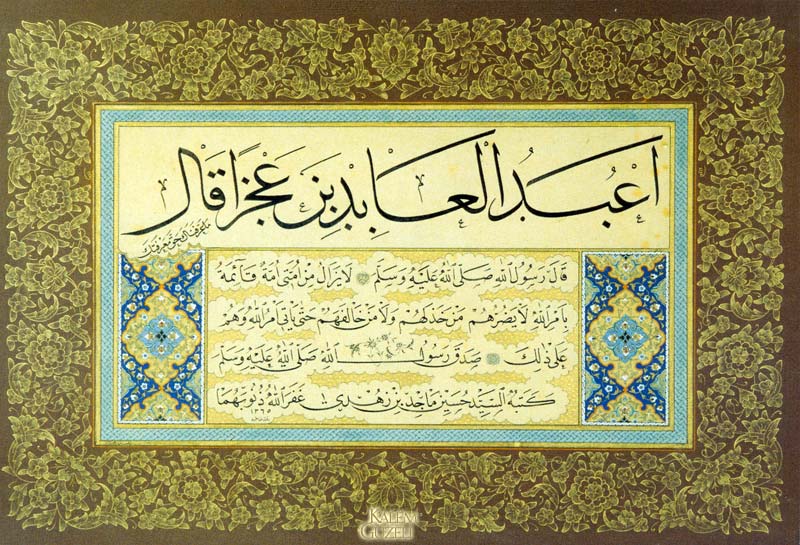 اَعْبَدُ الْعَابِدِينَ عَجْزًا قَالَ
مَا عَرَفْنَاكَ حَقَّ مَعْرِفَتِكَ
قَالَ رَسُولُ اللهِ صَلَّى اللهُ عَلَيْهِ وَسَلَّمَ لَا يَزَالُ مِنْ اُمَّتِى اُمَّةٌ قَائِمَةٌ
بِاَمْرِ اللهِ لَا يَضُرُّهُمْ مَنْ خَذَلَهُمْ وَلَا مَنْ خَالَفَهُمْ حَتَّى يَأْتِىَ اَمْرُ اللهِ وَهُمْ
عَلَى ذٰلِكَ صَدَقَ رَسُولُ اللهِ صَلَّى اللهُ عَلَيْهِ وَسَلَّمَ
كَتَبَهُ السَّيِّدْ حُسَيْنْ مَاجِدْ بِنْ زُهْدِى غَفَرَ اللهُ ذُنُوبَهُمَا
١٣٦٥
KALEM GÜZELİ